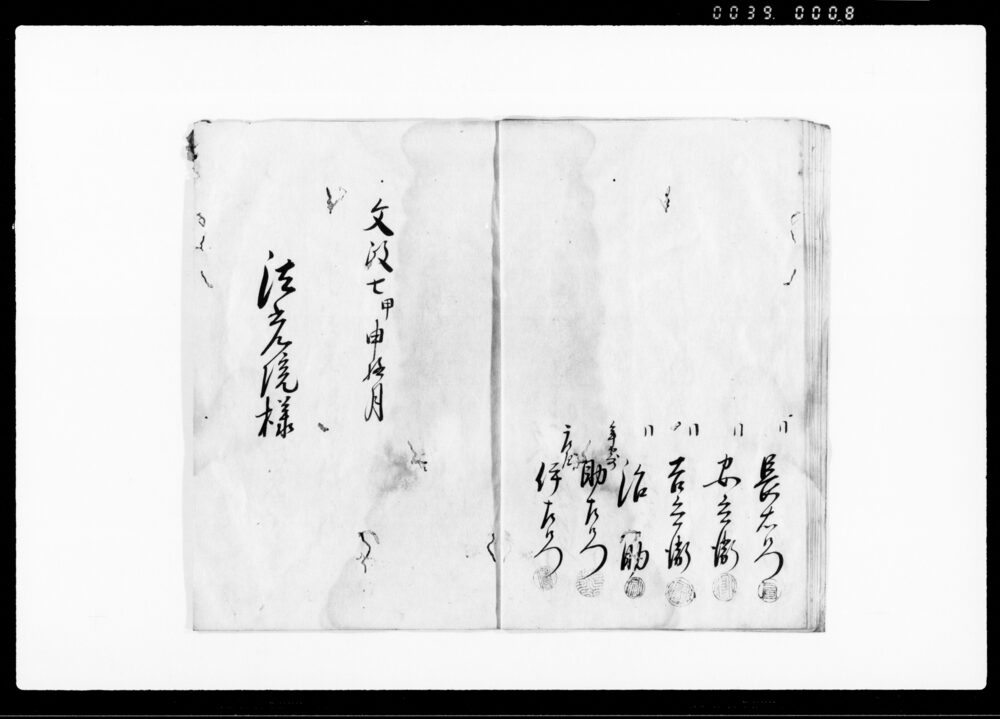 0039 0008
同 長右衛門
同 安兵衛
同 吉兵衛
同 治助
年寄 助左衛門
庄屋 伊左衛門
文政七甲申極月
法光院様